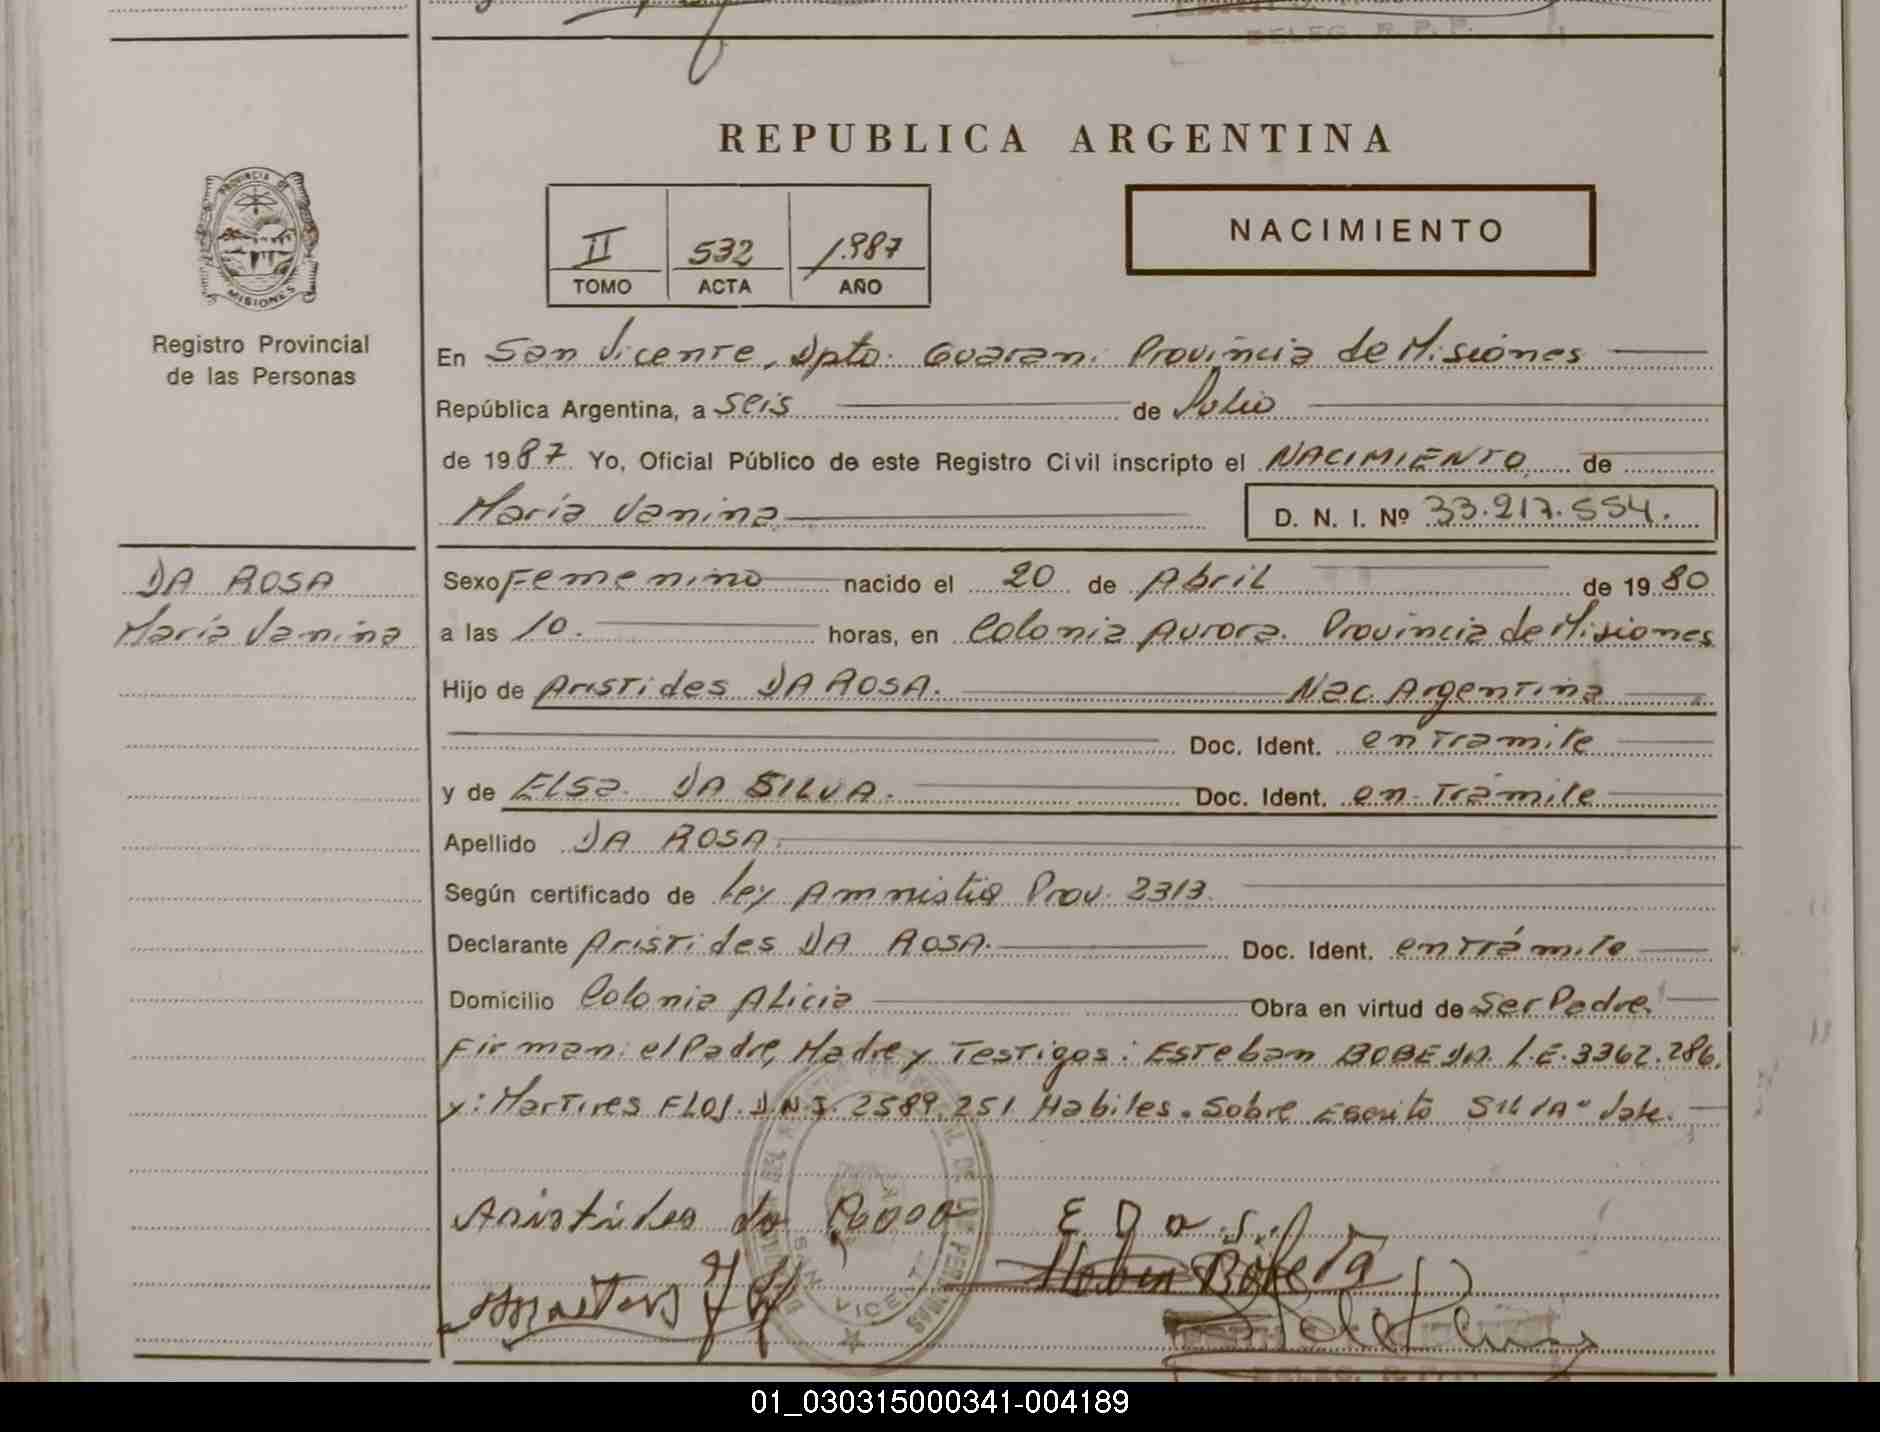 REPUBLICA ARGENTINA
II 532 1.987
TOMO ACTA AÑO
NACIMIENTO
PROVINCIA DE MISIONES
Registro Provincial
de las Personas
En San Vicente, Dpto. Guarani Provincia de Misiones
República Argentina, a seis de Julio
de 1987 Yo, Oficial Público de este Registro Civil inscripto el NACIMIENTO de
María Vanina D. N. I. Nº 33.217.554.
DA ROSA
María Vanina
Sexo Femenino nacido el 20 de Abril de 1980
a las 10. horas, en Colonia Aurora. Provincia de Misiones
Hijo de Aristides DA ROSA. Nac. Argentina
Doc. Ident. en Tramite
y de Elsa DA SILVA. Doc. Ident. en Trámite
Apellido DA ROSA.
Según certificado de Ley Amnistia Prov. 2313.
Declarante Aristides DA ROSA. Doc. Ident. en Trámite
Domicilio Colonia Alicia Obra en virtud de Ser Padre.
Firman: el Padre, Madre y Testigos: Esteban BOBEDA. L.E. 3362.286.
y: Martires FLOS. D.N.I. 2589.251 Habiles. Sobre Escrito SILVA" Vale.
Aristides da Rosa E D a S.
Esteban Bobeda
VICENTE
DELEG. R.P.P.
01_030315000341-004189